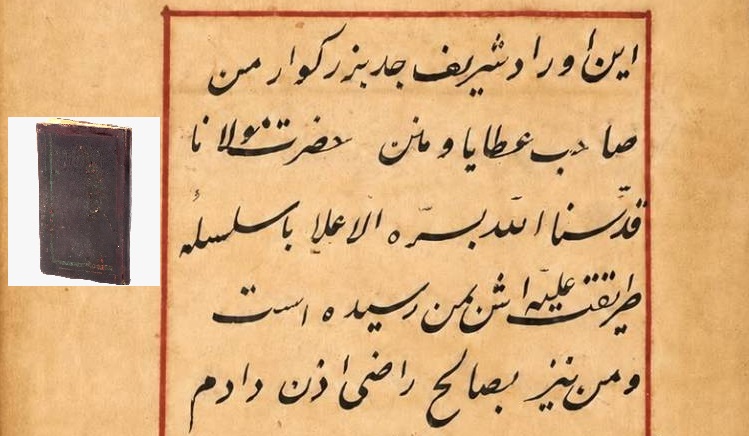 این اوراد شریف جد بزرگوار من
صاحب عطایا و منن حضرت مولانا
قدّسنا اللّه بسرّه الاعلا باسلسلهٔ
طریقت علیّه اش بمن رسیده است
و من نیز بصالح راضی اذن دادم